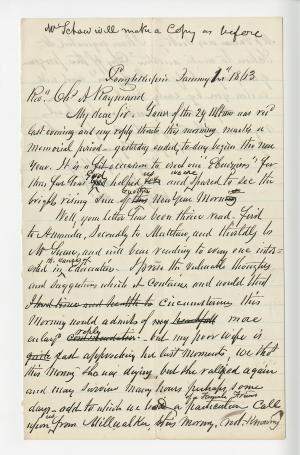 Mr Schou will make a Copy as before
Poughkeepsie January 1st 1863
Revd Chs A Raymond
My dear Sir. Yours of the 29 Ultimo was recd
last evening and my reply thereto this morning marks a
memorial period – yesterday ended, to day begins the new
Year. It is a fit occasion to erect our Ebenezer "for
thus far God has helped us" and spared to see the
bright rising Sun of this New Year Morning
Well your letter has been thrice read. First
to Amanda, Secondly to Matthew, and thirdly to
Mr Swan, and will bear reading to any one inter-
ested in the cause of Education. I prize the valuable thoughts
and suggestions which it contains and would that
circumstances this
Morning would admit of my more
enlarged reply – but my poor wife is
fast approaching her last moments, we thot
this Morning she was dying, but she rallyed again
and may survive many hours perhaps some
days – add to which we had a particular Call
upon us from Milwaukee this Morning, (not knowing